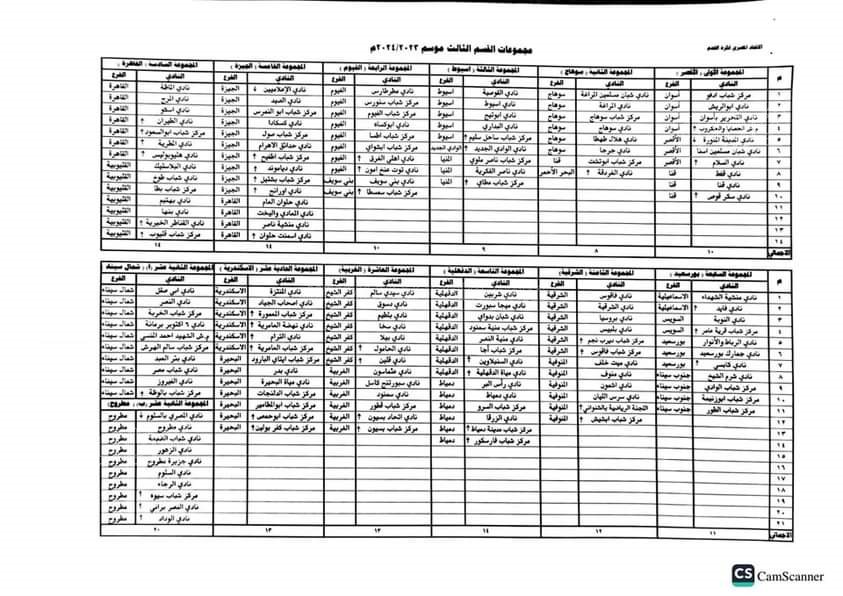 الاتحاد المصرى لكرة القدم
مجموعات القسم الثالث موسم ٢٠٢٤/٢٠٢٣م
م
المجموعة الأولى : الأقصر
النادي
الفرع
١ مركز شباب ادفو أسوان
٢ نادي ابوالريش أسوان
٣ نادي التحرير بأسوان أسوان
٤ أسوان
٥ نادي المدينة المنورة الأقصر
٦ نادي شبان مسلمين اسنا الأقصر
٧ نادي السلام الأقصر
٨ نادي قفط قنا
٩ نادي قنا قنا
١٠ نادي سكر قوص قنا
١١
١٢
١٣
١٤
الاجمالي ١٠
المجموعة الثانية : سوهاج
النادي
الفرع
نادي شبان مسلمين المراغة سوهاج
نادي المراغة سوهاج
مركز شباب سوهاج سوهاج
نادي سوهاج سوهاج
نادي هلال طهطا سوهاج
نادي جرجا سوهاج
مركز شباب ابوتشت قنا
نادي الغردقة البحر الأحمر
٨
المجموعة الثالثة : أسيوط
النادي
الفرع
نادي القوصية اسيوط
نادي أسيوط اسيوط
نادي ابوتيج اسيوط
نادي البداري اسيوط
مركز شباب ساحل سليم اسيوط
نادي الوادي الجديد الوادي الجديد
مركز شباب ناصر ملوي المنيا
نادي ناصر الفكرية المنيا
مركز شباب مطاي المنيا
٩
المجموعة الرابعة : الفيوم
النادي
الفرع
نادي مطرطارس الفيوم
مركز شباب سنورس الفيوم
مركز شباب الفيوم الفيوم
نادي ابوكساه الفيوم
مركز شباب اطسا الفيوم
مركز شباب ابشواي الفيوم
نادي اهلى الغرق الفيوم
نادي توت عنخ امون الفيوم
نادي بني سويف بني سويف
مركز شباب سمسطا بني سويف
١٠
المجموعة الخامسة : الجيزة
النادي
الفرع
نادي الإعلاميين الجيزة
نادي الصيد الجيزة
مركز شباب ابو النمرس الجيزة
نادي كسكادا الجيزة
مركز شباب صول الجيزة
نادي حدائق الاهرام الجيزة
مركز شباب اطفيح الجيزة
نادي دياموند الجيزة
مركز شباب بشتيل الجيزة
نادي اورانج الجيزة
نادي حلوان العام القاهرة
نادي المعادي واليخت القاهرة
نادي منشية ناصر القاهرة
نادي اسمنت حلوان القاهرة
١٤
المجموعة السادسة : القاهرة
النادي
الفرع
نادي الماظة القاهرة
نادي المرج القاهرة
نادي اسكو القاهرة
نادي الطيران القاهرة
مركز شباب ابوالسعود القاهرة
نادي المطرية القاهرة
نادي هليوبوليس القاهرة
نادي البلاستيك القليوبية
مركز شباب طوخ القليوبية
مركز شباب بطا القليوبية
نادي بهتيم القليوبية
نادي بنها القليوبية
نادي القناطر الخيرية القليوبية
مركز شباب قليوب القليوبية
١٤
المجموعة السابعة : بورسعيد
النادي
الفرع
١ نادي منشية الشهداء الاسماعيلية
٢ نادي فايد الاسماعيلية
٣ نادي النوبة السويس
٤ مركز شباب قرية عامر السويس
٥ نادي الرباط والأنوار بورسعيد
٦ نادي جمارك بورسعيد بورسعيد
٧ نادي بورسعيد
٨ نادي شرم الشيخ جنوب سيناء
٩ مركز شباب الوادي جنوب سيناء
١٠ مركز شباب ابوزنيمة جنوب سيناء
١١ مركز شباب الطور جنوب سيناء
١٢
١٣
١٤
١٥
١٦
١٧
١٨
١٩
٢٠
٢١
الاجمالي ١١
المجموعة الثامنة : الشرقية
النادي
الفرع
نادي فاقوس الشرقية
نادي الشرقية الشرقية
نادي بروسيا الشرقية
نادي بلبيس الشرقية
مركز شباب ديرب نجم الشرقية
مركز شباب فاقوس الشرقية
نادي ميت خلف المنوفية
نادي منوف المنوفية
نادي اشمون المنوفية
نادي سرس الليان المنوفية
اللجنة الرياضية بالشنواني المنوفية
مركز شباب ابشيش المنوفية
١٢
المجموعة التاسعة : الدقهلية
النادي
الفرع
نادي شربين الدقهلية
نادي ميجا سبورت الدقهلية
نادي شبان بدواي الدقهلية
مركز شباب منية سمنود الدقهلية
نادي منية النصر الدقهلية
مركز شباب أجا الدقهلية
نادي السنبلاوين الدقهلية
نادي مياة الدقهلية الدقهلية
نادي رأس البر دمياط
نادي دمياط دمياط
مركز شباب السرو دمياط
نادي الزرقا دمياط
مركز شباب مدينة دمياط دمياط
مركز شباب فارسكور دمياط
١٤
المجموعة العاشرة : الغربية
النادي
الفرع
نادي سيدي سالم كفر الشيخ
نادي دسوق كفر الشيخ
نادي بلطيم كفر الشيخ
نادي سخا كفر الشيخ
نادي بيلا كفر الشيخ
نادي الحامول كفر الشيخ
نادي قلين كفر الشيخ
نادي طماسون الغربية
نادي سبورتنج كاسل الغربية
نادي سمنود الغربية
مركز شباب قطور الغربية
نادي اتحاد بسيون الغربية
مركز شباب بسيون الغربية
١٣
المجموعة الحادية عشر : الاسكندرية
النادي
الفرع
نادي المنتزة الاسكندرية
نادي اصحاب الجياد الاسكندرية
مركز شباب المعمورة الاسكندرية
نادي نهضة العامرية الاسكندرية
نادي الترام الاسكندرية
مركز شباب العامرية الاسكندرية
مركز شباب ايتاي البارود البحيرة
نادي بدر البحيرة
نادي مياة البحيرة البحيرة
مركز شباب الدلنجات البحيرة
مركز شباب ابوالمطامير البحيرة
مركز شباب ابوحمص البحيرة
مركز شباب كفر بولين البحيرة
١٣
المجموعة الثانية عشر (أ) : شمال سيناء
النادي
الفرع
نادي ابي صقل شمال سيناء
نادي النصر شمال سيناء
مركز شباب الخربة شمال سيناء
نادي ٦ أكتوبر برمانة شمال سيناء
م.ش الشهيد احمد المنسي شمال سيناء
مركز شباب سالم الهرش شمال سيناء
نادي بئر العبد شمال سيناء
مركز شباب مصر شمال سيناء
نادي الفيروز شمال سيناء
مركز شباب بالوظة شمال سيناء
المجموعة الثانية عشر (ب) : مطروح
نادي المصري بالسلوم مطروح
نادي مطروح مطروح
نادي شباب الضبعة مطروح
نادي الزهور مطروح
نادي جزيرة مطروح مطروح
نادي السلوم مطروح
نادي الرجاء مطروح
مركز شباب سيوة مطروح
نادي النصر براني مطروح
نادي الوداد مطروح
٢٠
CS CamScanner